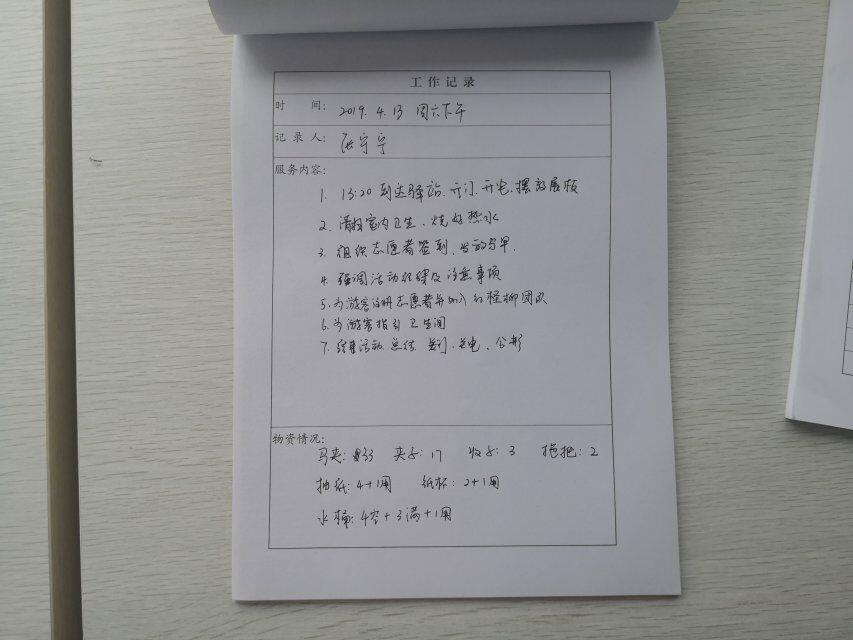 工作记录
时 间: 2019.4.13 周六下午
记录人: 张宁宁
服务内容:
1. 13:20 到达驿站、开门、开电、摆放展板
2. 清扫室内卫生、烧好热水
3. 组织志愿者签到、发放马甲.
4. 强调活动纪律及注意事项
5. 为游客注册志愿者并加入红柽柳团队
6. 为游客指引卫生间
7. 结束活动. 总结. 关门. 关电、合影
物资情况:
马夹: 33 夹子: 17 收子: 3 拖把: 2
抽纸: 4+1用 纸杯: 2+1用
水桶: 4空+3满+1用